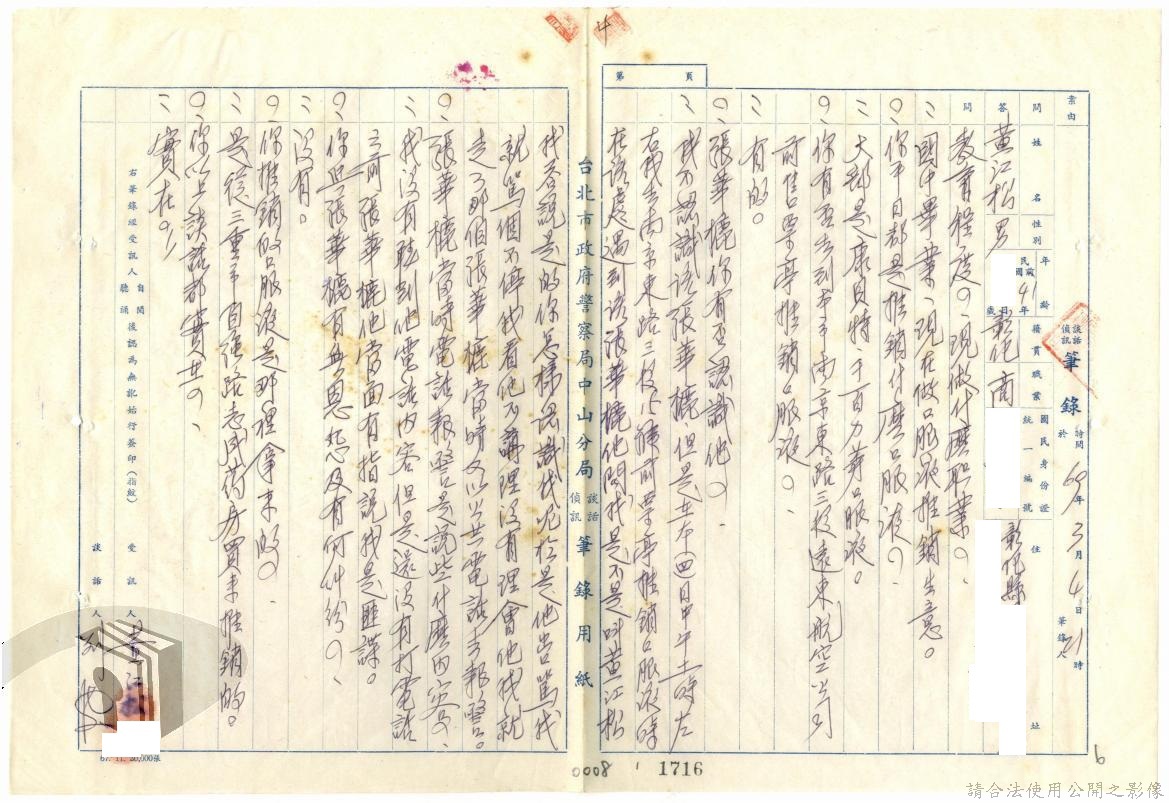 第 頁
案由
談話
偵訊
筆錄
時間 69年3月4日21時
於
筆錄人
問 姓名 性別 年齡 籍貫 職業 國民身份證統一編號 住址
答 黃江松 男 民國前 41年 月 日 歲 彰化 商 彰化縣
問 教育程度?現做什麼职業?
國中畢業、現在做口服液推銷生意。
你平日都是推銷什麼口服液?
大都是康貝特、千百力葬口服液。
你有否去到本市南京東路三段遠東航空公司
前售票亭推銷口服液?
有的。
張華欉你有否認識他?
我不認識該張華欉,但是在本四日中午十二時左
右我去南京東路三段 號前票亭推銷口服液時
在該處遇到該張華欉他問我是不是叫黃江松
台北市政府警察局中山分局
談話
偵訊
筆錄用紙
我答說是的你怎樣認識我呢於是他嘗罵我
就罵個不停我看他不講理沒有理會他我就
走了那個張華欉當時又以公共電話去報警。
張華欉當時電話報警是說些什麼內容?
我沒有聽到他電話內容但是還沒有打電話
之前張華欉他當面有指說我是匪諜。
你與張華欉有無恩怨及有何糾紛?
沒有。
你推銷的口服液是那裡拿來的?
是從三重市自強路志成葯房買來推銷的。
你以上談話都實在?
實在。
右筆錄經受訊人 自閱 聽誦 後認為無訛始行簽印(指紋)
受訊人 黃江
談話人
67. 11. 20,000張
0008
1716
6
請合法使用公開之影像